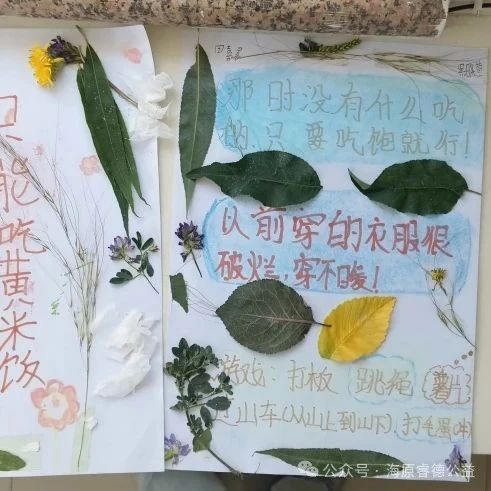 只能吃黄米饭
那时没有什么吃
的只要吃饱就行!
以前穿的衣服很
破烂,穿不暖!
游戏:打板 跳绳
过山车(从山上到山下),打毛蛋(球)
公众号·海原睿德公益